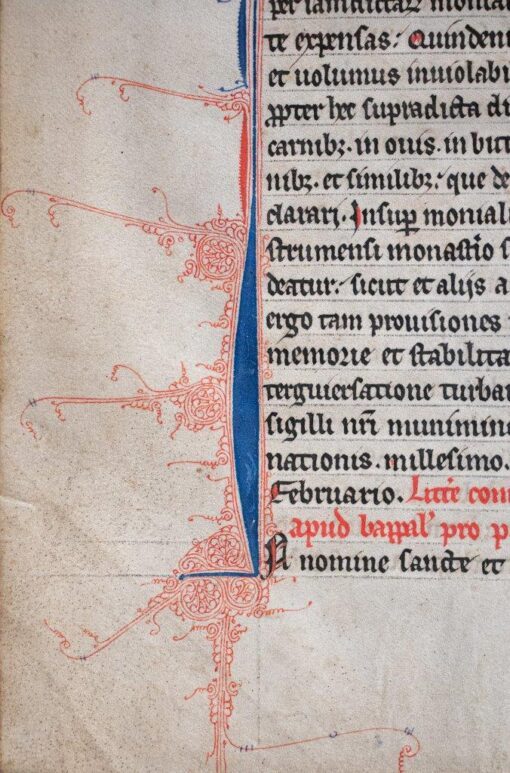 per iamdictaꝝ monial
te expensas: Quindeni
et uolumus inuiolabi
ꝓpter hec supradicta di
carnibꝫ. in ouis. in buti
nibꝫ. et similibꝫ: que de
clarari. Insuꝑ moniali
strumensi monastio s
deatur: sicut et alijs a
ergo tam prouisiones
memorie et stabilita
terguiersatione turbar
sigilli nr̄i munimine
nationis. millesimo.
Februario. Litt̄e con
apud bappal' pro p
In nomine sancte et